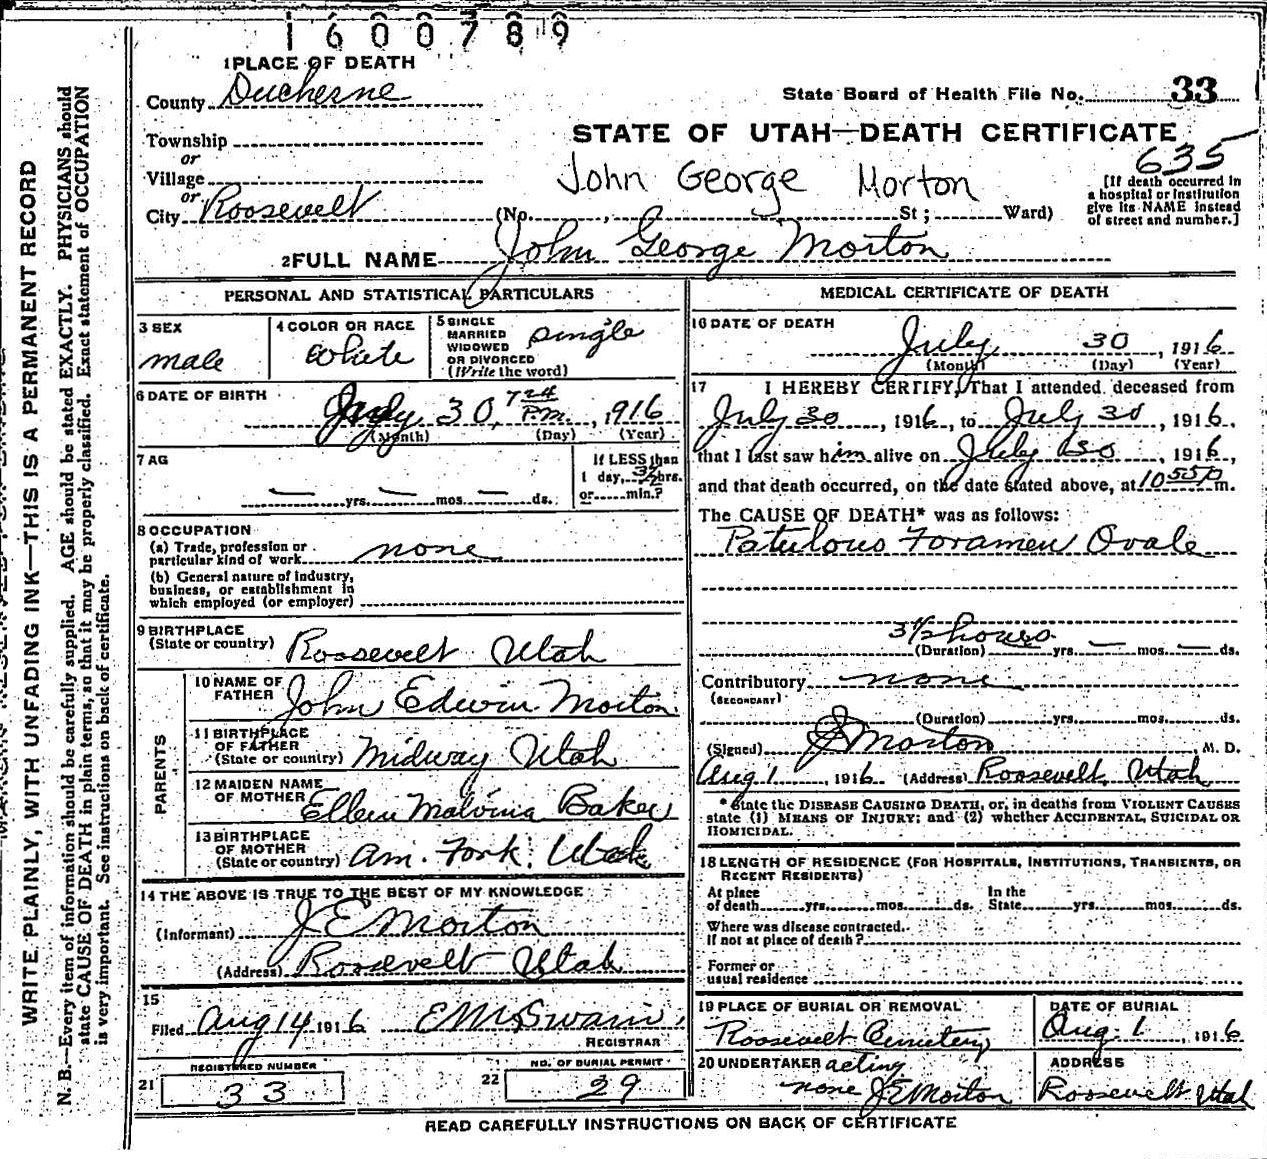 1600789
1 PLACE OF DEATH
County Duchesne
State Board of Health File No. 33
Township
or
Village
or
City Roosevelt
STATE OF UTAH—DEATH CERTIFICATE
635
John George Morton
[If death occurred in
a hospital or institution
give its NAME instead
of street and number.]
(No. , St ; Ward)
2 FULL NAME John George Morton
PERSONAL AND STATISTICAL PARTICULARS
3 SEX
male
4 COLOR OR RACE
White
5 SINGLE
MARRIED
WIDOWED
OR DIVORCED
(Write the word)
single
6 DATE OF BIRTH
July 30, 7 24 P.M., 1916
(Month) (Day) (Year)
7 AG
yrs. mos. ds.
If LESS than
1 day, 3½ hrs.
or min.?
8 OCCUPATION
(a) Trade, profession or
particular kind of work none
(b) General nature of industry,
business, or establishment in
which employed (or employer)
9 BIRTHPLACE
(State or country) Roosevelt Utah
PARENTS
10 NAME OF
FATHER John Edwin Morton
11 BIRTHPLACE
OF FATHER
(State or country) Midway Utah
12 MAIDEN NAME
OF MOTHER Ellen Malvina Baker
13 BIRTHPLACE
OF MOTHER
(State or country) Am. Fork. Utah
14 THE ABOVE IS TRUE TO THE BEST OF MY KNOWLEDGE
(Informant) J E Morton
(Address) Roosevelt Utah
15
Filed Aug 14 1916 E McSwain,
REGISTRAR
REGISTERED NUMBER
21 33
NO. OF BURIAL PERMIT
22 29
MEDICAL CERTIFICATE OF DEATH
16 DATE OF DEATH
July 30, 1916
(Month) (Day) (Year)
17 I HEREBY CERTIFY, That I attended deceased from
July 30, 1916, to July 30, 1916,
that I last saw him alive on July 30, 1916,
and that death occurred, on the date stated above, at 10 55 p m.
The CAUSE OF DEATH* was as follows:
Patulous Foramen Ovale
3½ hours
(Duration) yrs. mos. ds.
Contributory none
(SECONDARY)
(Duration) yrs. mos. ds.
(Signed) J Morton, M. D.
Aug 1, 1916 (Address) Roosevelt, Utah
* State the DISEASE CAUSING DEATH, or, in deaths from VIOLENT CAUSES
state (1) MEANS OF INJURY; and (2) whether ACCIDENTAL, SUICIDAL OR
HOMICIDAL.
18 LENGTH OF RESIDENCE (FOR HOSPITALS, INSTITUTIONS, TRANSIENTS, OR
RECENT RESIDENTS)
At place
of death yrs. mos. ds.
In the
State yrs. mos. ds.
Where was disease contracted,
If not at place of death?
Former or
usual residence
19 PLACE OF BURIAL OR REMOVAL
Roosevelt Cemetery
DATE OF BURIAL
Aug. 1, 1916
20 UNDERTAKER acting
none J E Morton
ADDRESS
Roosevelt Utah
READ CAREFULLY INSTRUCTIONS ON BACK OF CERTIFICATE
WRITE PLAINLY, WITH UNFADING INK—THIS IS A PERMANENT RECORD
N. B.—Every item of information should be carefully supplied. AGE should be stated EXACTLY. PHYSICIANS should
state CAUSE OF DEATH in plain terms, so that it may be properly classified. Exact statement of OCCUPATION
is very important. See instructions on back of certificate.